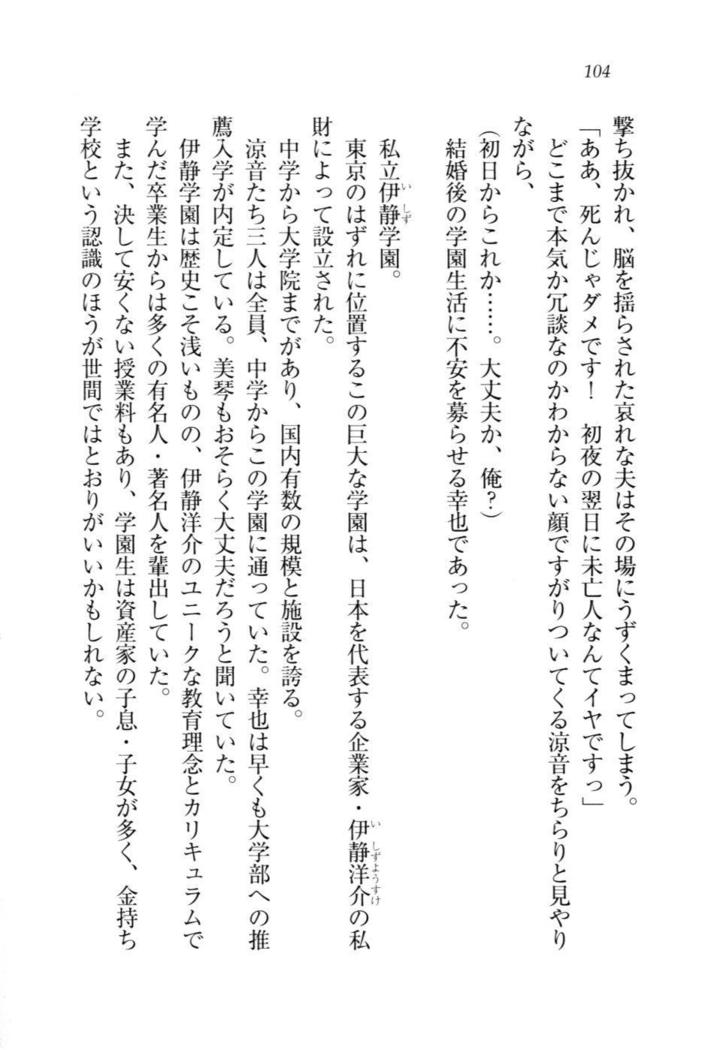 104
撃ち抜かれ、脳を揺らされた哀れな夫はその場にうずくまってしまう。
「ああ、死んじゃダメです！　初夜の翌日に未亡人なんてイヤですっ」
どこまで本気か冗談なのかわからない顔ですがりついてくる涼音をちらりと見やり
ながら、
（初日からこれか……。大丈夫か、俺？）
結婚後の学園生活に不安を募らせる幸也であった。
私立伊静学園。
東京のはずれに位置するこの巨大な学園は、日本を代表する企業家・伊静洋介の私
財によって設立された。
中学から大学院までがあり、国内有数の規模と施設を誇る。
涼音たち三人は全員、中学からこの学園に通っていた。幸也は早くも大学部への推
薦入学が内定している。美琴もおそらく大丈夫だろうと聞いていた。
伊静学園は歴史こそ浅いものの、伊静洋介のユニークな教育理念とカリキュラムで
学んだ卒業生からは多くの有名人・著名人を輩出していた。
また、決して安くない授業料もあり、学園生は資産家の子息・子女が多く、金持ち
学校という認識のほうが世間ではとおりがいいかもしれない。